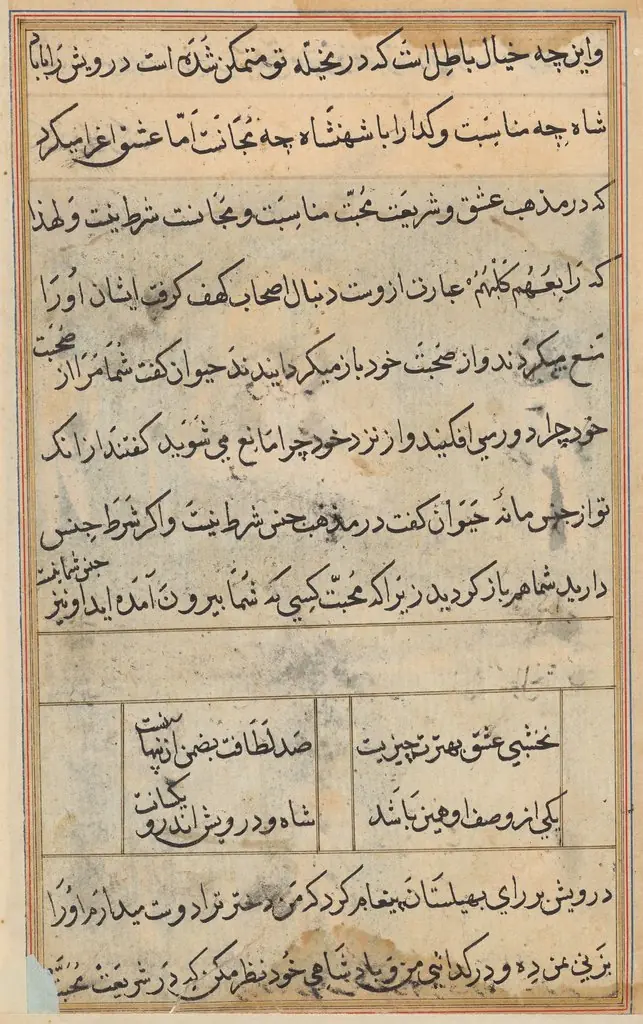 واین چه خیال باطل است که در مخیله تو متمکن شده است درویش را با پاد
شاه چه مناسبت و کدا را با شهنشاه چه مجانست اما عشق اغرا میکرد
که در مذهب عشق و شریعت محبت مناسبت و مجانست شرط نیست و لهذا
که رابعهم کلبهم عبارت ازوست دنبال اصحاب کهف کرفت ایشان اورا
منع میکردند و از صحبت خود باز میکردانیدند حیوان کفت شما مرا از صحبت
خود چرا دور می افکنید و از نزد خود چرا مانع می شوید کفتند از انک
تو از جنس ما نهٔ حیوان کفت در مذهب جنس شرط نیست و اکر شرط جنس
دارید شما هم باز کردید زیرا که محبت کسی که شما بیرون آمده اید او نیز جنس شما نیست
نخشبی عشق بهترت چیزیست صد لطافت بضمن از نهانست
یکی از وصف او همین باشد شاه و درویش اندرو یکسانست
درویش بر رای بهیلستان پیغام کرد که من دختر ترا دوست میدارم اورا
بزنی بمن ده و در کدائی من و پادشاهی خود نظر مکن که در شریعت محبت